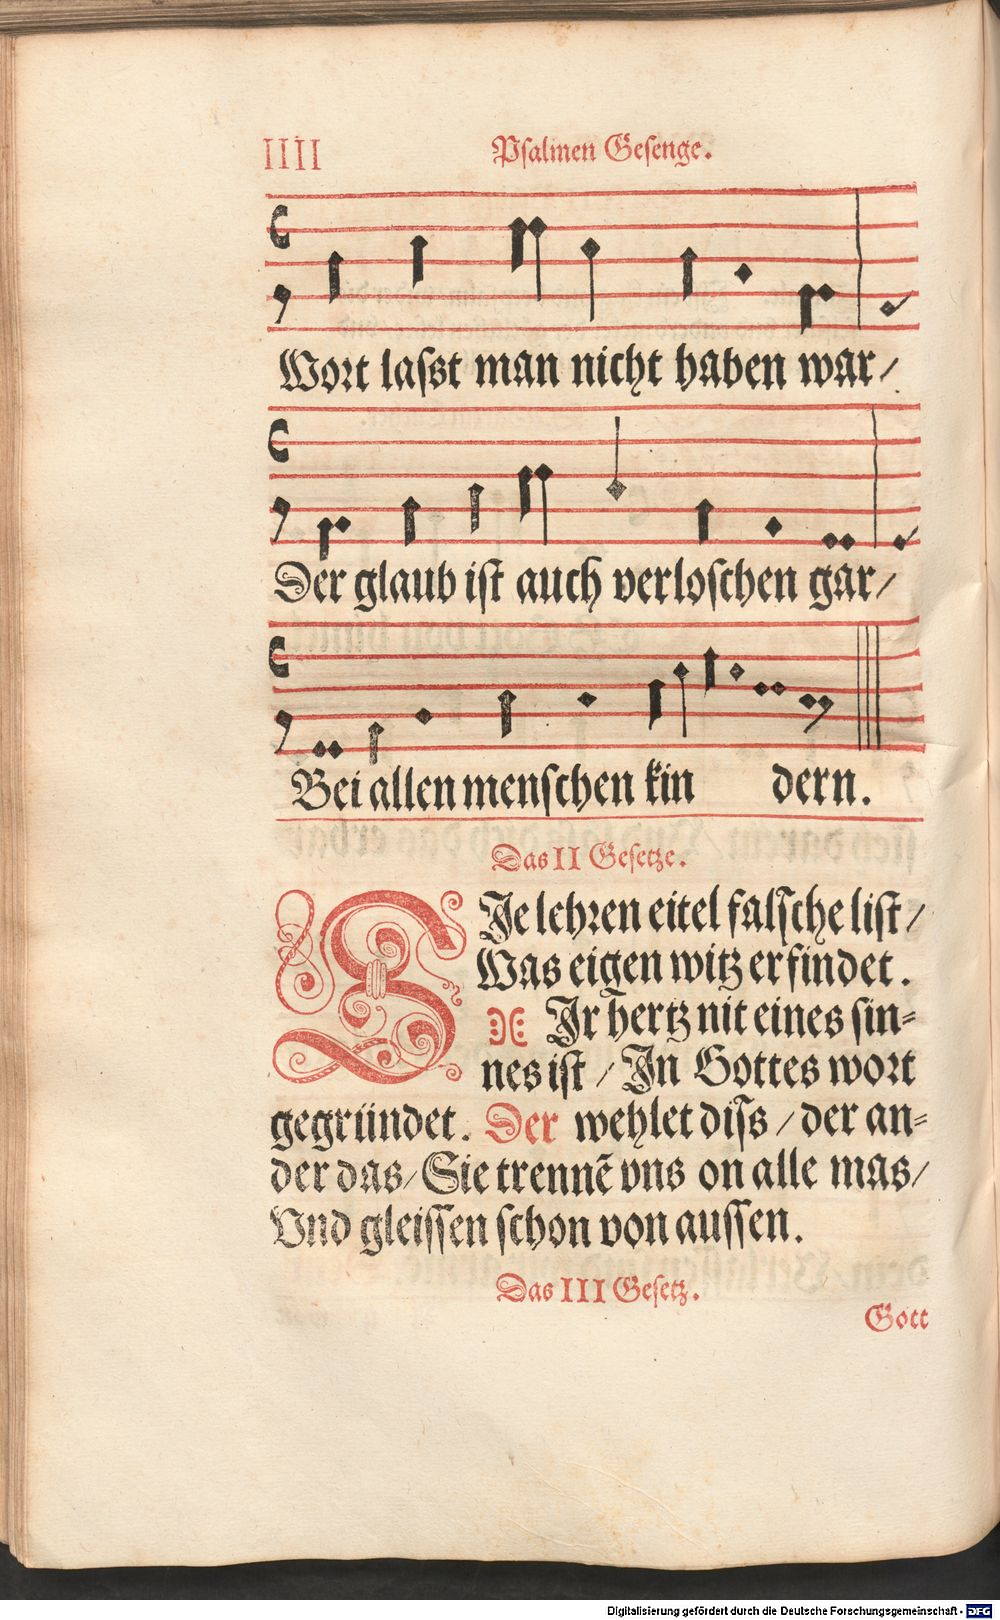 IIII
Psalmen Gesenge.
Wort lasst man nicht haben war/
Der glaub ist auch verloschen gar/
Bei allen menschen kin dern.
Das II Gesetze.
SJe lehren eitel falsche list/
Was eigen witz erfindet.
Jr hertz nit eines sin⸗
nes ist / Jn Gottes wort
gegründet. Der wehlet diss / der an⸗
der das/ Sie trennẽ vns on alle mas/
Vnd gleissen schon von aussen.
Das III Gesetz.
Gott
Digitalisierung gefördert durch die Deutsche Forschungsgemeinschaft - DFG